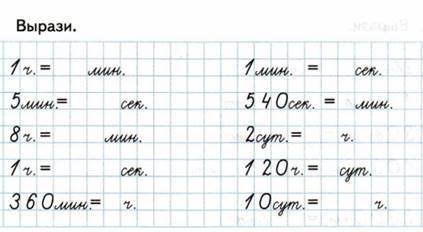 Вырази.
1ч.= мин.
5мин.= сек.
8ч.= мин.
1ч.= сек.
360мин.= ч.
1мин. = сек.
540сек. = мин.
2сут.= ч.
120ч.= сут.
10сут.= ч.